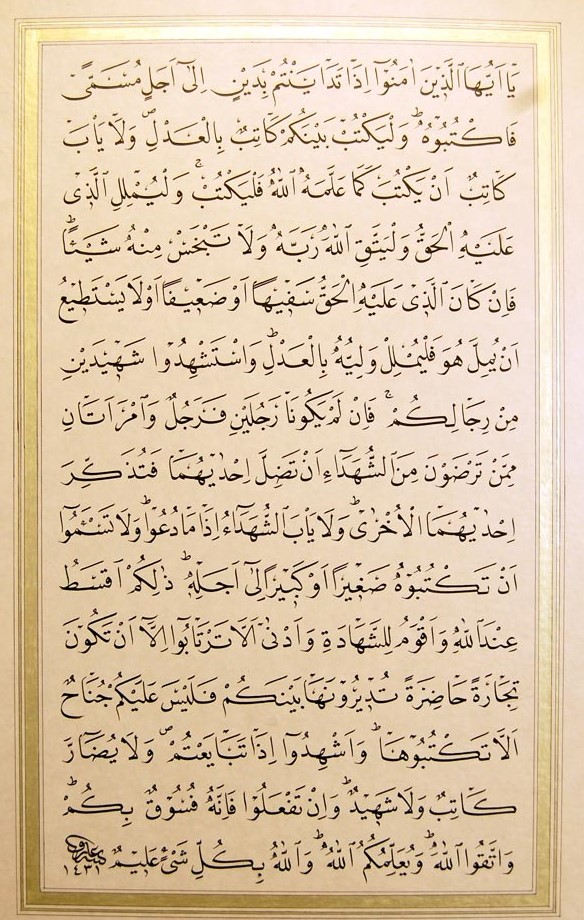 يَا اَيُّهَا الَّذِينَ اٰمَنُوٓا اِذَا تَدَايَنْتُمْ بِدَيْنٍ اِلٰٓى اَجَلٍ مُسَمًّى
فَاكْتُبُوهُ ۜ وَلْيَكْتُبْ بَيْنَكُمْ كَاتِبٌ بِالْعَدْلِ ۖ وَلَا يَأْبَ
كَاتِبٌ اَنْ يَكْتُبَ كَمَا عَلَّمَهُ اللّٰهُ فَلْيَكْتُبْ ۚ وَلْيُمْلِلِ الَّذِى
عَلَيْهِ الْحَقُّ وَلْيَتَّقِ اللّٰهَ رَبَّهُ وَلَا يَبْخَسْ مِنْهُ شَيْـًٔا ۜ
فَاِنْ كَانَ الَّذِى عَلَيْهِ الْحَقُّ سَفِيهًا اَوْ ضَعِيفًا اَوْ لَا يَسْتَطِيعُ
اَنْ يُمِلَّ هُوَ فَلْيُمْلِلْ وَلِيُّهُ بِالْعَدْلِ ۜ وَاسْتَشْهِدُوا شَهِيدَيْنِ
مِنْ رِجَالِكُمْ ۚ فَاِنْ لَمْ يَكُونَا رَجُلَيْنِ فَرَجُلٌ وَامْرَاَتَانِ
مِمَّنْ تَرْضَوْنَ مِنَ الشُّهَدَٓاءِ اَنْ تَضِلَّ اِحْدٰيهُمَا فَتُذَكِّرَ
اِحْدٰيهُمَا الْاُخْرٰى ۜ وَلَا يَأْبَ الشُّهَدَٓاءُ اِذَا مَا دُعُوا ۜ وَلَا تَسْـَٔمُٓوا
اَنْ تَكْتُبُوهُ صَغِيرًا اَوْ كَبِيرًا اِلٰٓى اَجَلِهِ ۜ ذٰلِكُمْ اَقْسَطُ
عِنْدَ اللّٰهِ وَاَقْوَمُ لِلشَّهَادَةِ وَاَدْنٰٓى اَلَّا تَرْتَابُٓوا اِلَّٓا اَنْ تَكُونَ
تِجَارَةً حَاضِرَةً تُدِيرُونَهَا بَيْنَكُمْ فَلَيْسَ عَلَيْكُمْ جُنَاحٌ
اَلَّا تَكْتُبُوهَا ۜ وَاَشْهِدُٓوا اِذَا تَبَايَعْتُمْ ۖ وَلَا يُضَٓارَّ
كَاتِبٌ وَلَا شَهِيدٌ ۜ وَاِنْ تَفْعَلُوا فَاِنَّهُ فُسُوقٌ بِكُمْ ۜ
وَاتَّقُوا اللّٰهَ ۜ وَيُعَلِّمُكُمُ اللّٰهُ ۜ وَاللّٰهُ بِكُلِّ شَىْءٍ عَلِيمٌ
١٤٣١